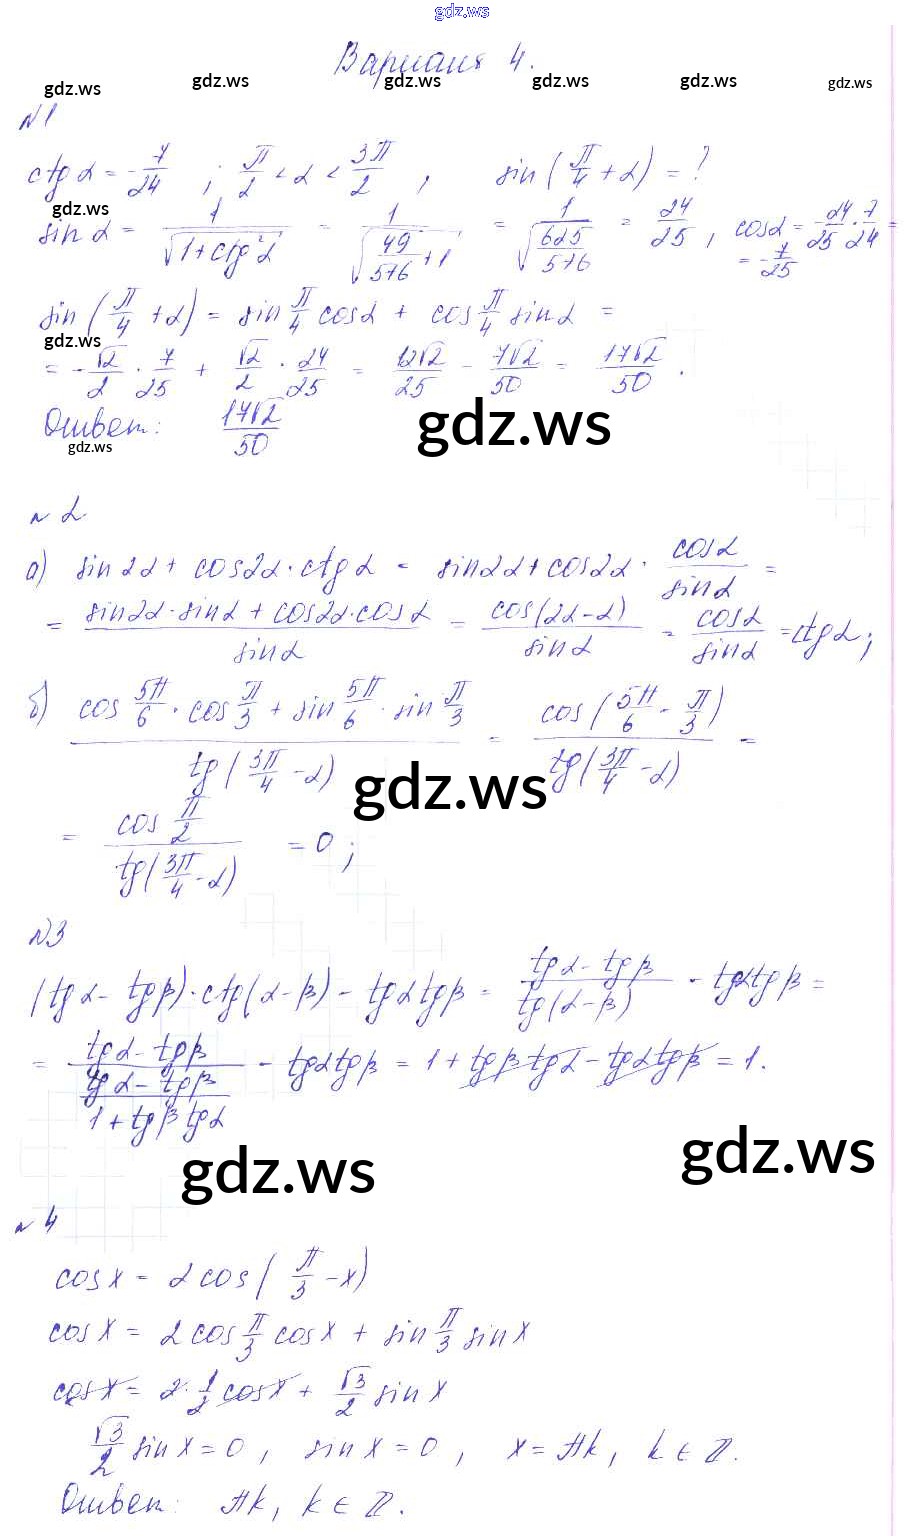 gdz.ws
Вариант 4.
gdz.ws gdz.ws gdz.ws gdz.ws gdz.ws gdz.ws
№1
ctg α = -7/24 ; π/2 < α < 3π/2 , sin(π/4 + α) = ?
gdz.ws
sin α = 1/√(1+ctg²α) = 1/√(49/576 + 1) = 1/√(625/576) = 24/25 , cos α = -24/25 · 7/24 =
= -7/25
sin(π/4 + α) = sin π/4 cos α + cos π/4 sin α =
gdz.ws
= -√2/2 · 7/25 + √2/2 · 24/25 = 12√2/25 - 7√2/50 = 17√2/50 .
Ответ: 17√2/50
gdz.ws
gdz.ws
№2
а) sin2α + cos2α · ctg α = sin2α + cos2α · cosα/sinα =
= (sin2α · sinα + cos2α · cosα)/sinα = cos(2α-α)/sinα = cosα/sinα = ctg α ;
б) (cos 5π/6 · cos π/3 + sin 5π/6 · sin π/3)/tg(3π/4 - α) = cos(5π/6 - π/3)/tg(3π/4 - α) =
gdz.ws
= cos π/2 / tg(3π/4 - α) = 0 ;
№3
(tg α - tg β) · ctg(α - β) - tg α tg β = (tg α - tg β)/tg(α - β) - tg α tg β =
= (tg α - tg β)/((tg α - tg β)/(1 + tg β tg α)) - tg α tg β = 1 + tg β tg α - tg α tg β = 1.
gdz.ws
gdz.ws
№4
cos x = 2 cos(π/3 - x)
cos x = 2 cos π/3 cos x + sin π/3 sin x
cos x = 2 · 1/2 cos x + √3/2 sin x
√3/2 sin x = 0 , sin x = 0 , x = πk , k ∈ Z.
Ответ: πk , k ∈ Z.